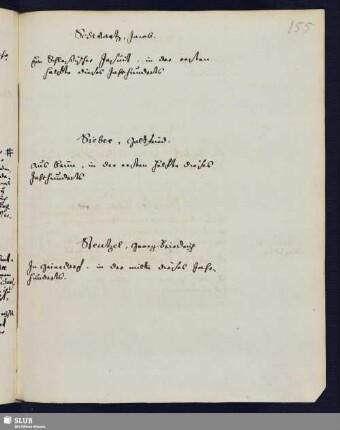 155
Schwartz, Jacob.
Ein Schlesischer Jesuit, in der ersten
Hälfte dieses Jahrhunderts
Sieber, Gottfried.
aus Brünn, in der ersten Hälfte dieses
Jahrhunderts
Stentzel, Georg Friedrich
In Heinersdorf, in der mitte dieses Jahr-
hunderts.
SLUB
Wir führen Wissen.